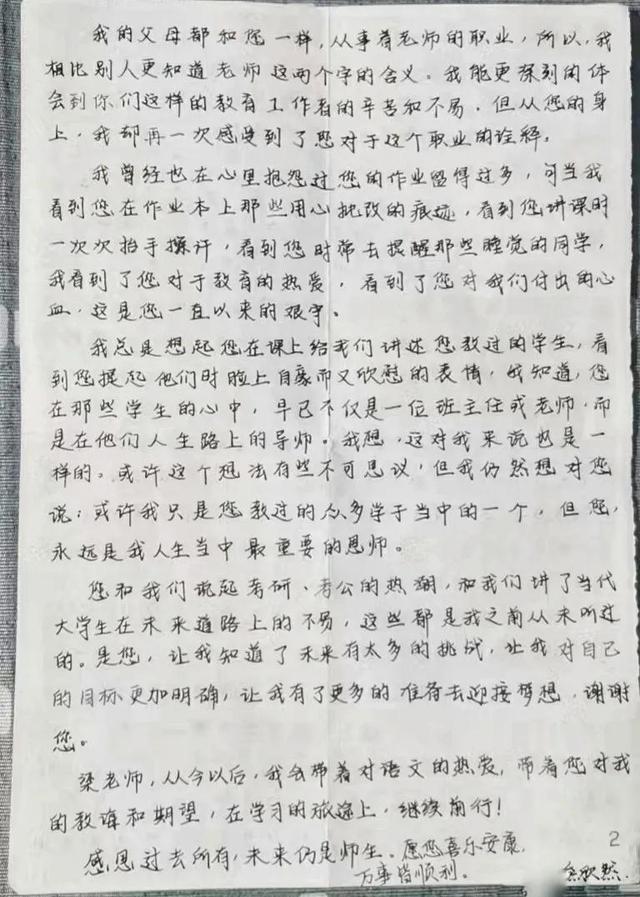 我的父母都和您一样,从事着老师的职业,所以,我
相比别人更知道老师这两个字的含义。我能更深刻的体
会到你们这样的教育工作者的辛苦和不易,但从您的身
上,我却再一次感受到了您对于这个职业的诠释。
我曾经也在心里抱怨过您的作业留得过多,可当我
看到您在作业本上那些用心批改的痕迹,看到您讲课时
一次次抬手擦汗,看到您时常去提醒那些睡觉的同学,
我看到了您对于教育的热爱,看到了您对我们付出的心
血,这是您一直以来的艰守。
我总是想起您在课上给我们讲述您教过的学生,看
到您提起他们时脸上自豪而又欣慰的表情,我知道,您
在那些学生的心中,早已不仅是一位班主任或老师,而
是在他们人生路上的导师。我想,这对我来说也是一
样的。或许这个想法有些不可思议,但我仍然想对您
说:或许我只是您教过的众多学子当中的一个,但您,
永远是我人生当中最重要的恩师。
您和我们说起考研、考公的热潮,和我们讲了当代
大学生在未来道路上的不易,这些都是我之前从未听过
的。是您,让我知道了未来有太多的挑战,让我对自己
的目标更加明确,让我有了更多的准备去迎接梦想,谢谢
您。
梁老师,从今以后,我会带着对语文的热爱,带着您对我
的教诲和期望,在学习的旅途上,继续前行!
感恩过去所有,未来仍是师生。愿您喜乐安康,
万事皆顺利。
2
欣然